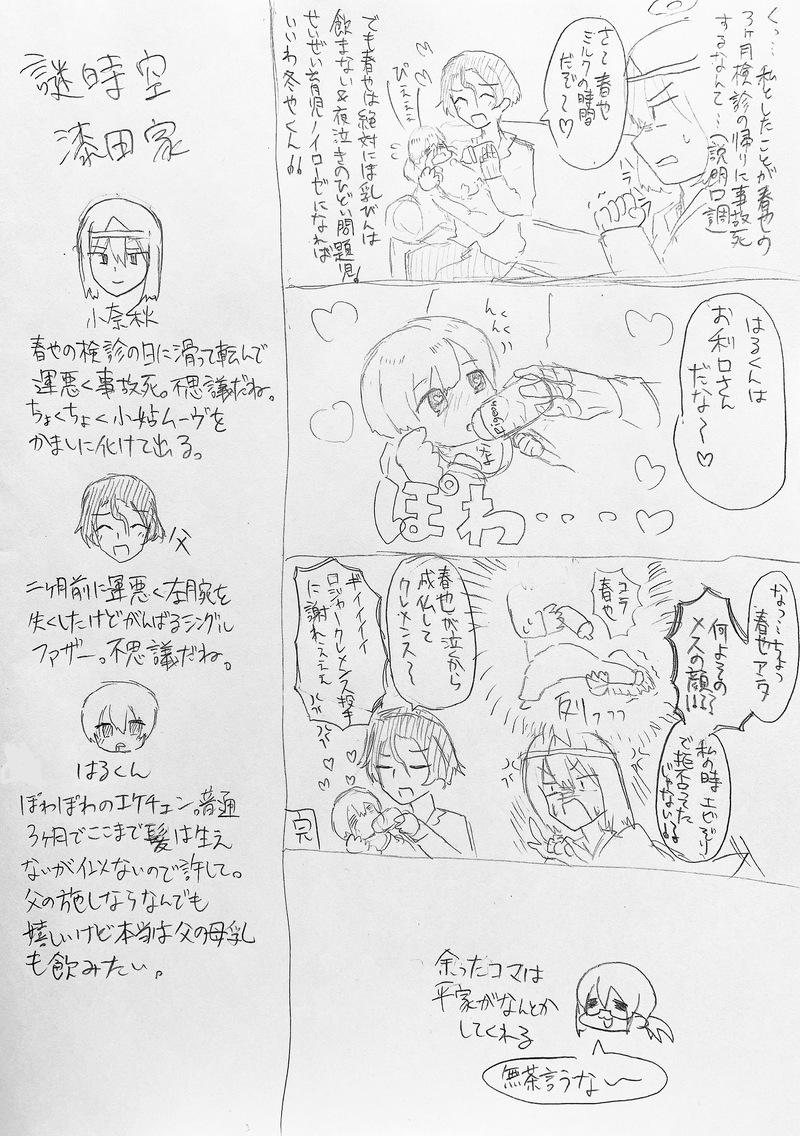 謎時空
漆田家
小奈秋
春也の検診の日に滑って転んで
運悪く事故死。不思議だね。
ちょくちょく小姑ムーヴを
かましに化けて出る。
父
二ヶ月前に運悪く左腕を
失くしたけどがんばるシングル
ファザー。不思議だね。
はるくん
ぽわぽわのエケチェン。普通
3ヶ月でここまで髪は生え
ないがイメないので許して。
父の施しならなんでも
嬉しいけど本当は父の母乳
も飲みたい。
くっ…私としたことが春也の
3ヶ月検診の帰りに事故死
するなんて…(説明口調
さて春也
ミルクの時間
だぞ〜♡
でも春也は絶対にほ乳びんは
飲まない&夜泣きのひどい問題児!
せいぜい育児ノイローゼになれば
いいわ冬也くん!!
はるくんは
お利口さん
だな〜♡
んくんく
ぽわ....
なっ…ちょっ
春也アンタ
何よその
メスの顔!!??
私の時エビぞり
で拒否ってた
じゃない!!
コラ
春也
春也が泣くから
成仏して
クレメンス〜
ギイイイイイ
ロジャークレメンス投手
に謝れええええ
完
余ったコマは
平家がなんとか
してくれる
無茶言うな〜